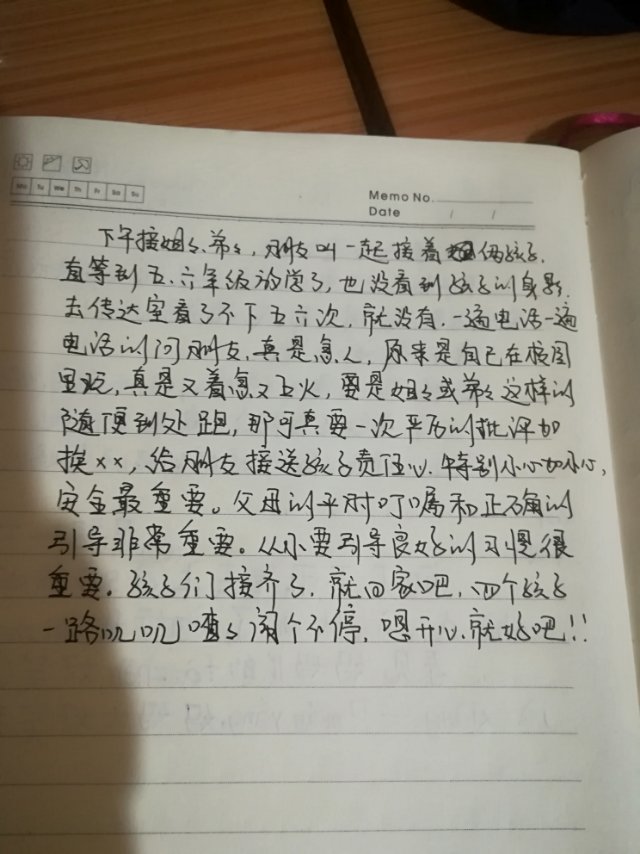 Mo Tu We Th Fr Sa Su
Memo No.
Date / /
下午接姐々、弟々，朋友叫一起接着她俩孩子.
直等到五.六年级放学了，也没看到孩子的身影.
去传达室看了不下五六次，就没有.一遍电话一遍
电话的问朋友.真是急人，原来是自己在校园
里玩，真是又着急又上火，要是姐々或弟々这样的
随便到处跑，那可真要一次严厉的批评加
挨××，给朋友接送孩子责任心.特别小心加小心，
安全最重要。父母的平时叮嘱和正确的
引导非常重要。从小要引导良好的习惯很
重要。孩子们接齐了，就回家吧，四个孩子
一路叽叽喳々闹个不停，嗯开心.就好吧!!